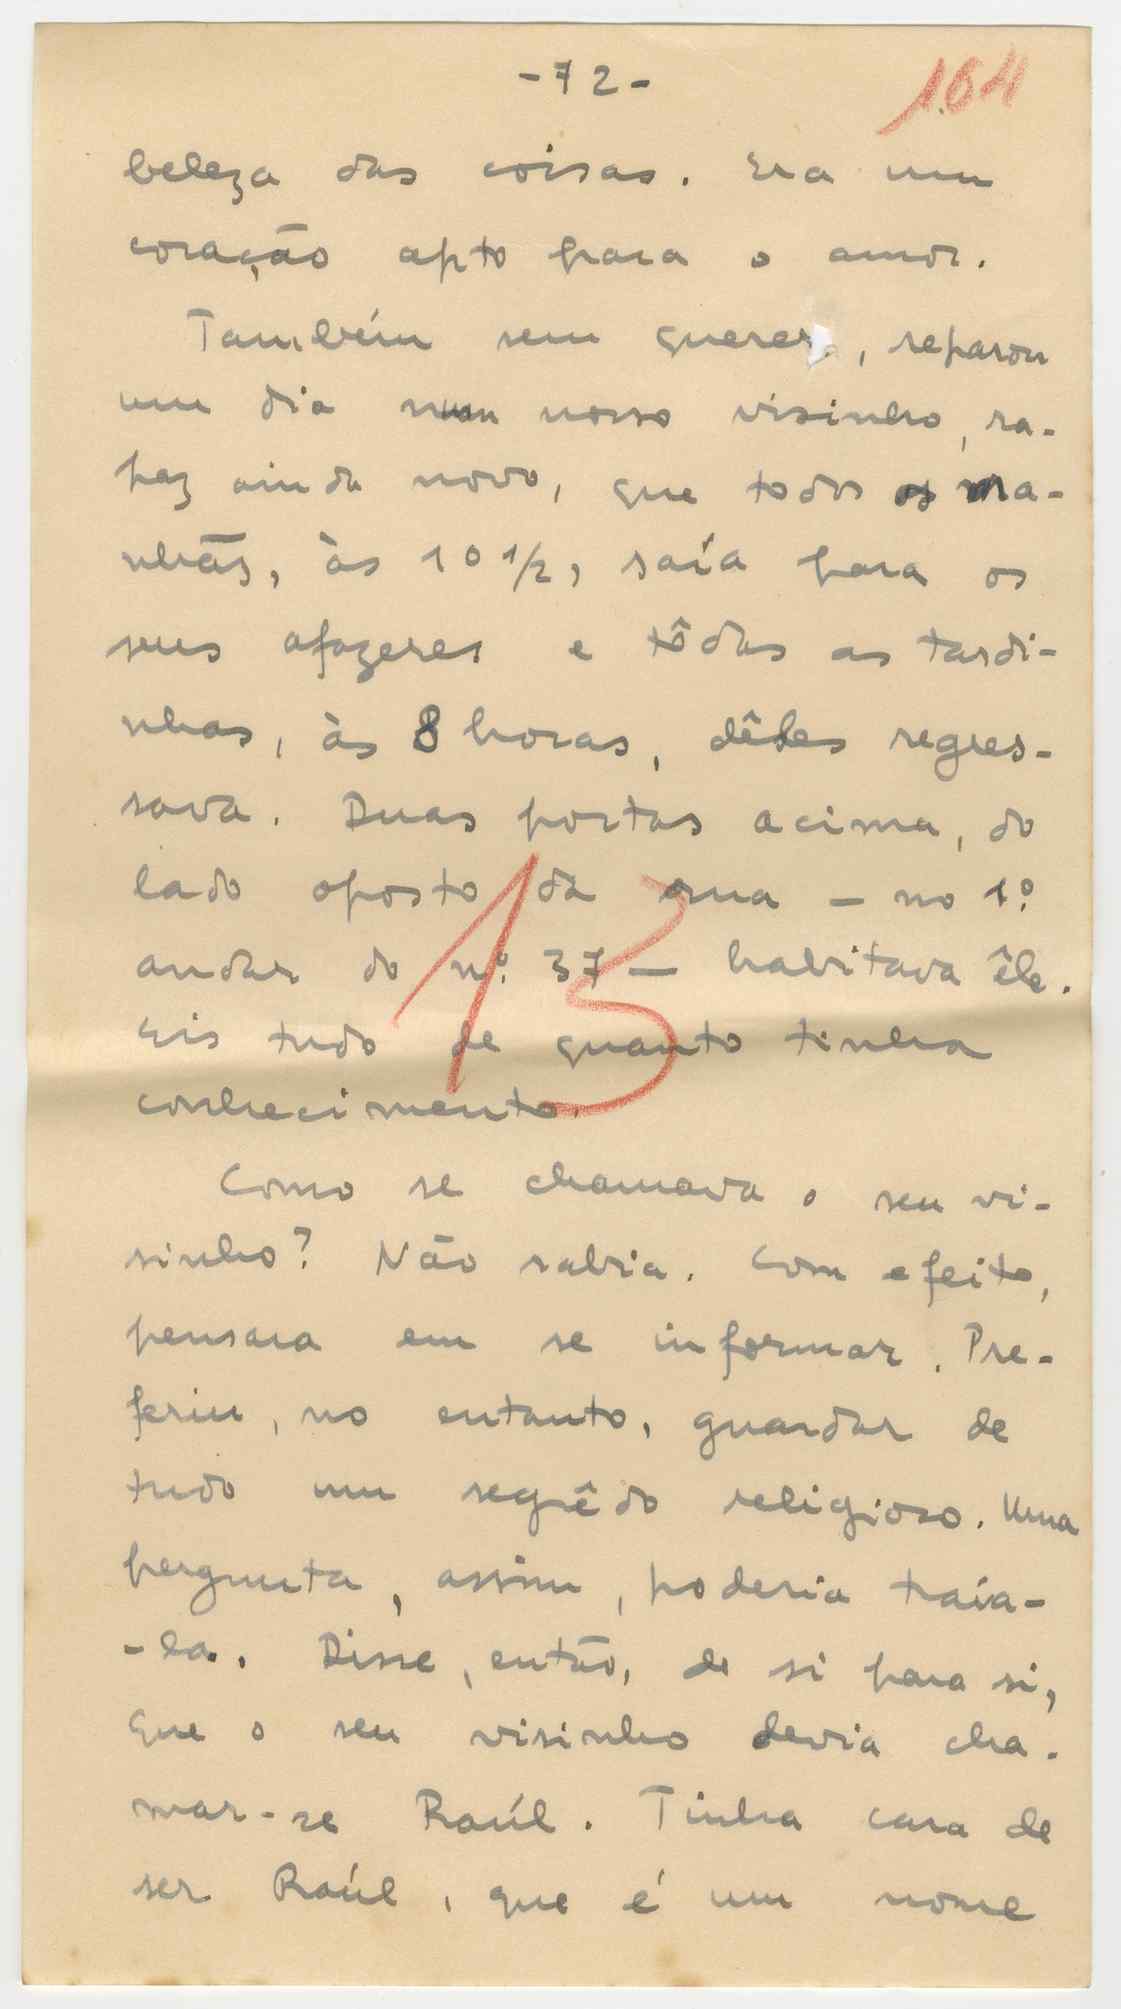 -72-
164
beleza das coisas. Era um
coração apto para o amor.
Também sem querer, reparou
um dia num nosso visinho, ra-
paz ainda novo, que todas as ma-
nhãs, às 10 1/2, saía para os
seus afazeres e tôdas as tardi-
nhas, às 8 horas, dêles regres-
sava. Duas portas acima, do
lado oposto da rua — no 1º
andar do nº 37 — habitava êle.
13
Eis tudo de quanto tinha
conhecimento.
Como se chamava o seu vi-
sinho? Não sabia. Com efeito,
pensara em se informar. Pre-
feriu, no entanto, guardar de
tudo um segrêdo religioso. Uma
pergunta, assim, poderia traía-
-la. Disse, então, de si para si,
que o seu visinho devia cha-
mar-se Raúl. Tinha cara de
ser Raúl, que é um nome